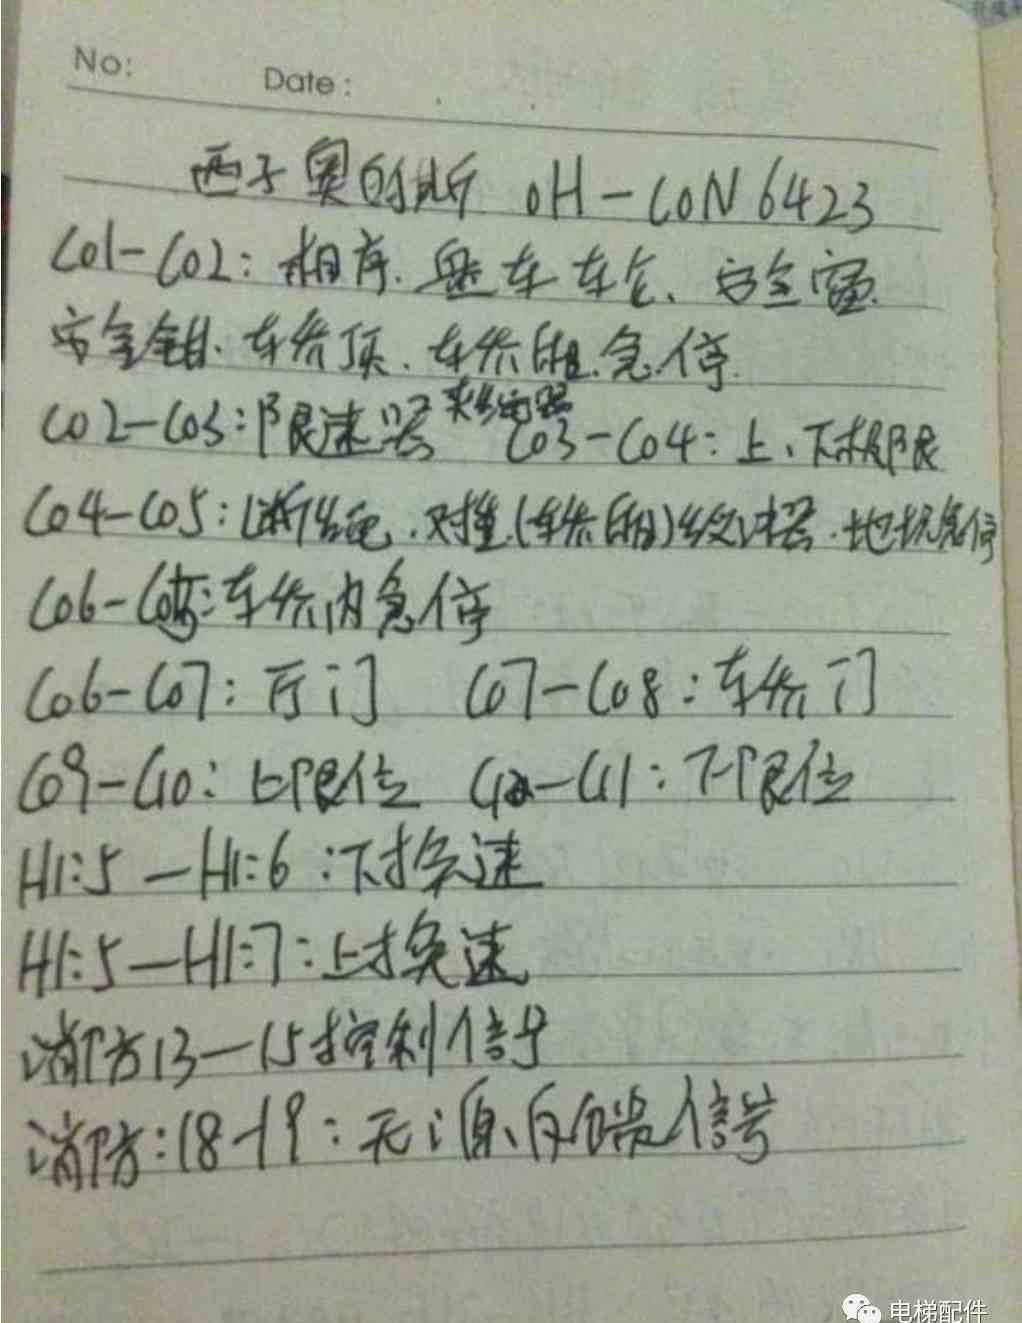 No:
Date:
西子奥的斯 OH-CON6423
C01-C02:相序、盘车车仓、安全窗、
安全钳、车桥顶、车桥相急停.
C02-C03:限速器 夹绳器 C03-C04:上、下极限
C04-C05:断绳,对重(车桥相)缓冲器、地坑急停
C06-C05:车桥内急停
C06-C07:厅门 C07-C08:车桥门
C09-C10:上限位 C12-C11:下限位
H1:5-H1:6:下换速
H1:5-H1:7:上换速
消防13-15控制信号
消防:18-19:无源、反馈信号
电梯配件